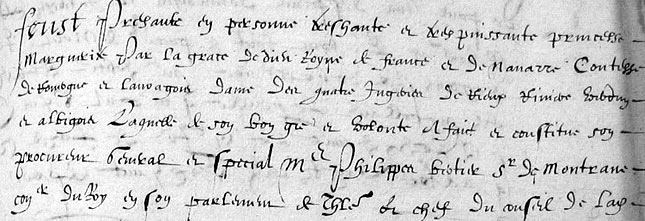 feust presante en personne treshaute et trespuissante princesse
Marguerite Par la grace de dieu Royne de france et de Navarre Contesse
de Rouergue et lauragois dame des quatre Jugeries de Rieux Riviere Verdun
et albigois Laquelle de son bon gre et volonte A fait et constitue son
procureur General et special Mer Philippes bertier Sr de Montrave
coner du Roy en son parlement de Thle et chef du conseil de lad